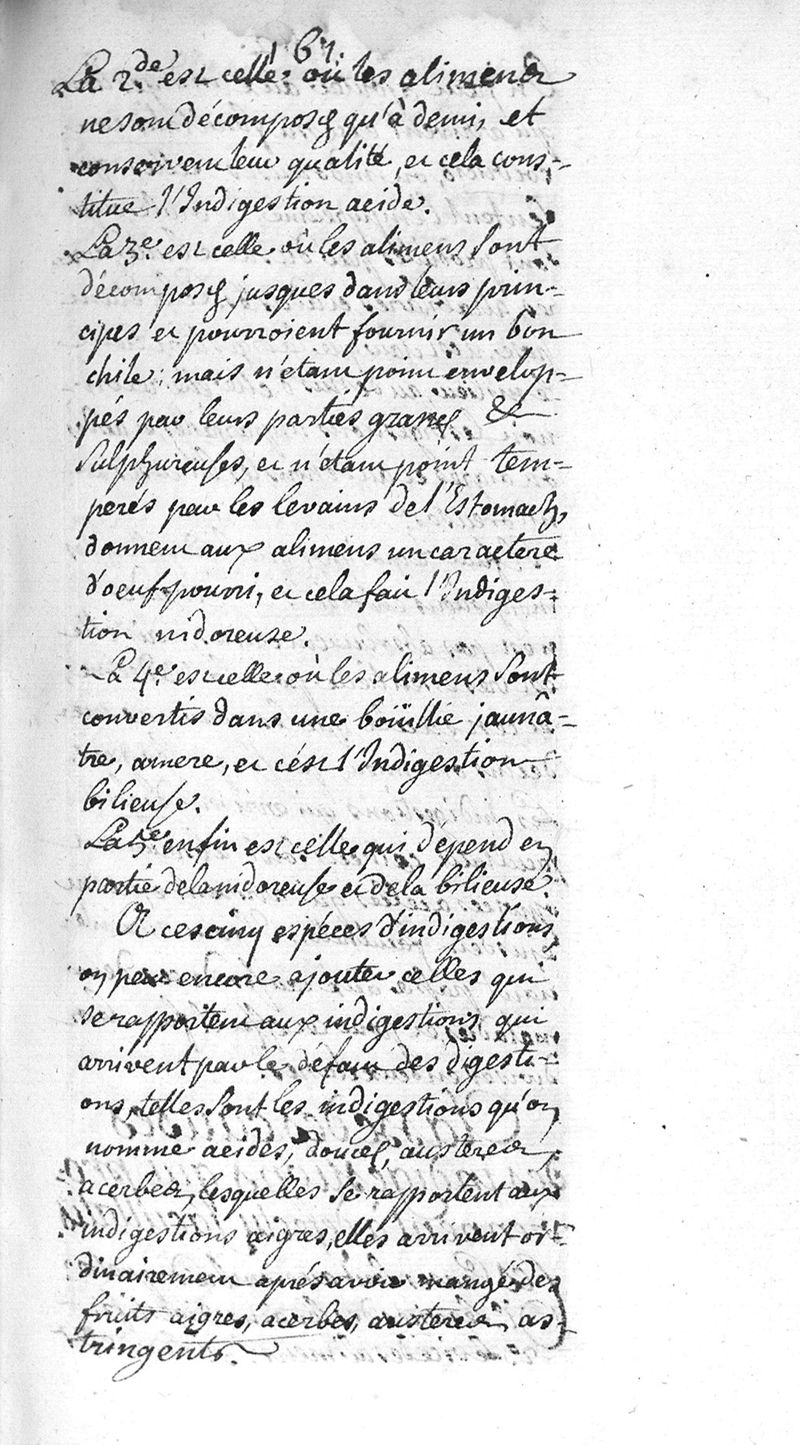 167.
La 2.de est celle où les alimens
ne sont décomposés qu'à demi, et
conservent leur qualité, et cela cons-
titue l'Indigestion acide.
La 3e. est celle où les alimens sont
décomposés jusques dans leurs prin-
cipes et pourroient fournir un bon
chile; mais n'étant point envelop-
pés par leurs parties grasses &
sulphureuses, et n'étant point tem-
perés par les levains de l'Estomach,
donnent aux alimens un caractere
d'oeuf pourri, et cela fait l'Indiges-
tion nidoreuse.
La 4e. est celle où les alimens sont
convertis dans une boüillie jaunâ-
tre, amere, et c'ést l'Indigestion
bilieuse.
La 5e. enfin est celle qui dépend en
partie de la nidoreuse et de la bilieuse.
A ces cinq espéces d'indigestions
on peut encore ajouter celles qui
se rapportent aux indigestions qui
arrivent par le défaut des digesti-
ons, telles sont les indigestions qu'on
nomme acides, douces, austeres,
acerbes, lesquelles se rapportent aux
indigestions aigres, elles arrivent or-
dinairement aprés avoir mangé des
fruits aigres, acerbes, austeres, as-
tringents.